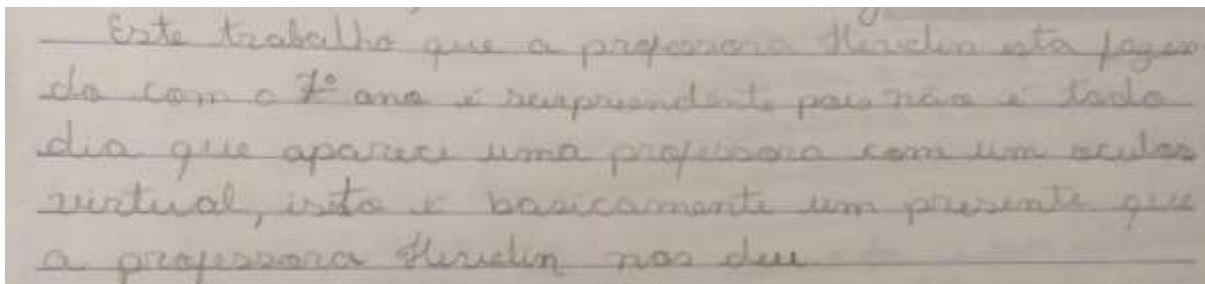 Este trabalho que a professora Heridin esta fazen
do com o 7º ano é surpreendente pois não é todo
dia que aparece uma professora com um oculos
virtual, isto é basicamente um presente que
a professora Heridin nos deu